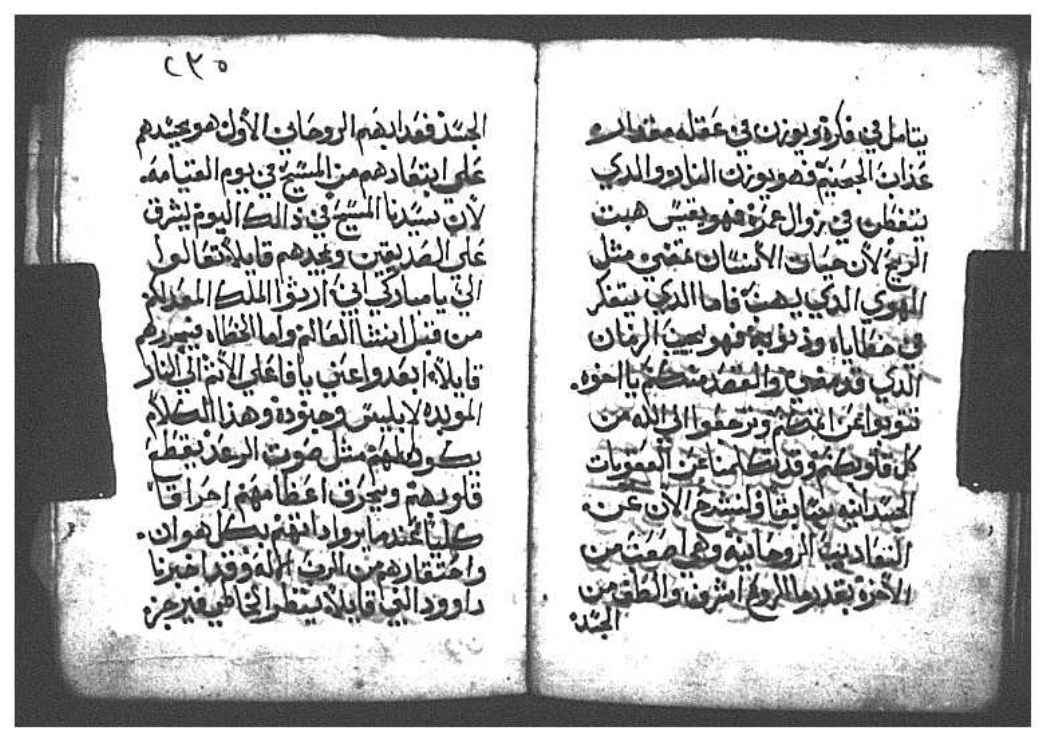 يتامل في فكرة ويوزن في عقله مقدار
عذاب الجحيم فهو يوزن النار والدي
يتفطن في زوال عمره فهو يقيس هبت
الريح لان حيات الانسان تمضي مثل
الهوي الدي يهب فاما الدي يتفكر
في خطاياه وذنوبه فهو يجيب الزمان
الدي قد مضي والقصد منكم يا اخوه.
تتوبوا عن اثمكم وترجعوا الي الله من
كل قلوبكم وقد تكلمنا عن العقوبات
الجسدانيه سابقا ولنشرح الان عن.
التعاديب الروحانيه وهي اصعب من
الاخرة بقدر ما الروح اشرف والطف من
الجسد
٢٣٥
الجسد فعدابهم الروحاني الاول هو يحسدهم
علي ابتعادهم من المسيح في يوم القيامة.
لان سيدنا المسيح في ذالك اليوم يشرق
علي الصديقين ويجدهم قايلا تعالوا
الي يا مباركي ابي ارتوا الملك المعد لكم
من قبل انشا العالم واما الخطاه يزجرهم
قايلا ابعدوا عني يا فاعلي الاثم الي النار
الموبده لابليس وجنوده وهذا الكلام
يكون لهم مثل صوت الرعد يقطع
قلوبهم ويحرق اعظامهم احراقا
كليا عندما يروا داتهم بكل هوان.
واحتقارهم من الرب الاله وقد اخبرنا
داوود النبي قايلا ينظر الخاطي فيرجز